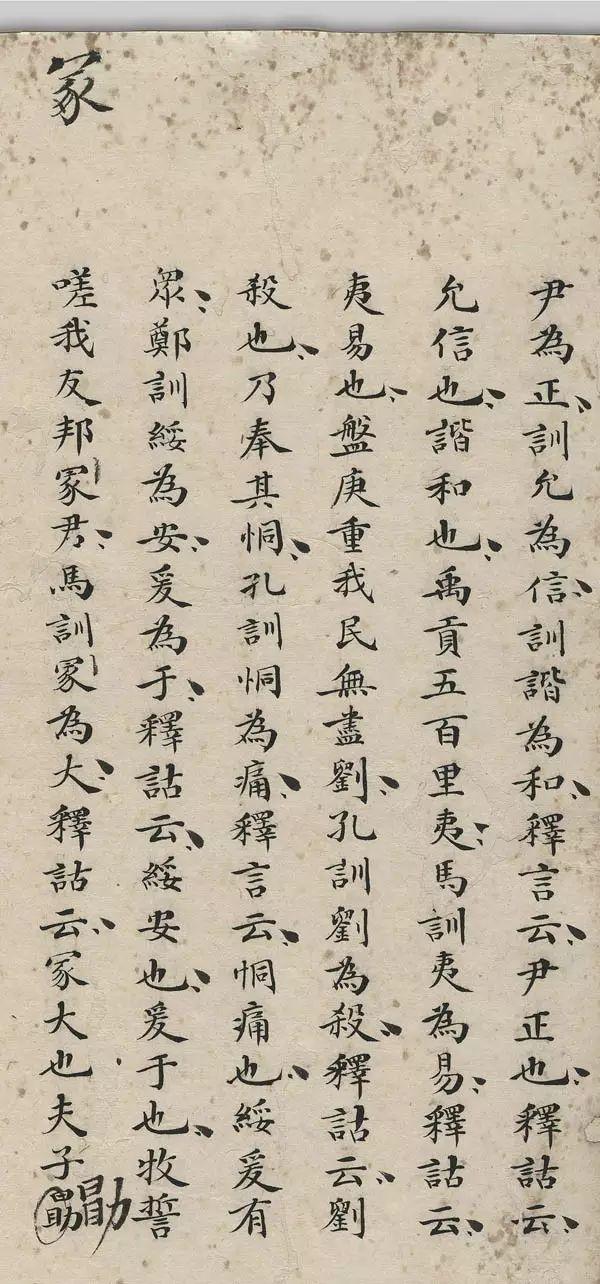 尹為正、訓允為信、訓諧為和、釋言云、尹正也、釋詁云、
允信也、諧和也、禹貢五百里夷、馬訓夷為易、釋詁云、
夷易也、盤庚重我民無盡劉、孔訓劉為殺、釋詁云、劉
殺也、乃奉其恫、孔訓恫為痛、釋言云、恫痛也、綏爰有
眾、鄭訓綏為安、爰為于、釋詁云、綏安也、爰于也、牧誓
嗟我友邦冢君、馬訓冢為大、釋詁云、冢大也夫子勖
勖
冢